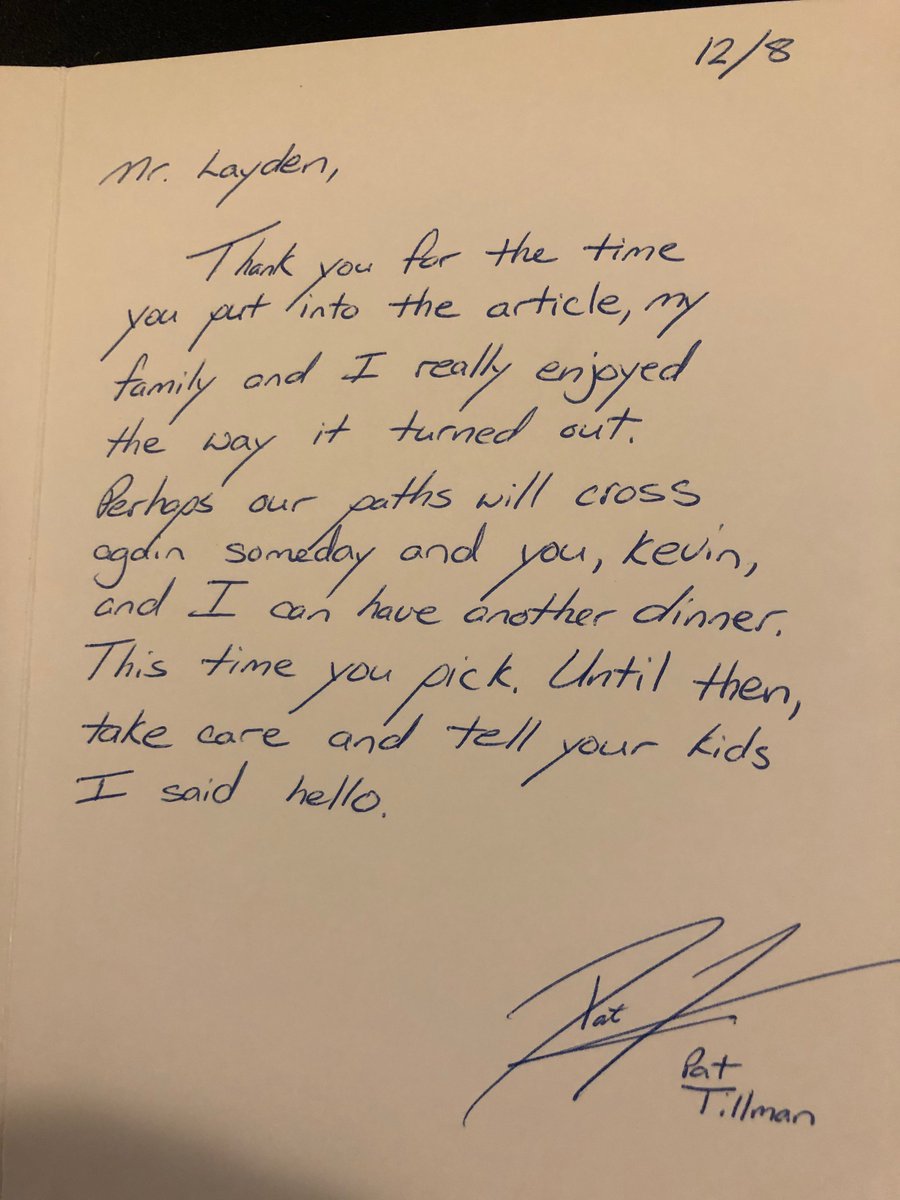 12/8
Mr. Layden,
Thank you for the time
you put into the article, my
family and I really enjoyed
the way it turned out.
Perhaps our paths will cross
again someday and you, Kevin,
and I can have another dinner.
This time you pick. Until then,
take care and tell your kids
I said hello.
Pat
Pat
Tillman